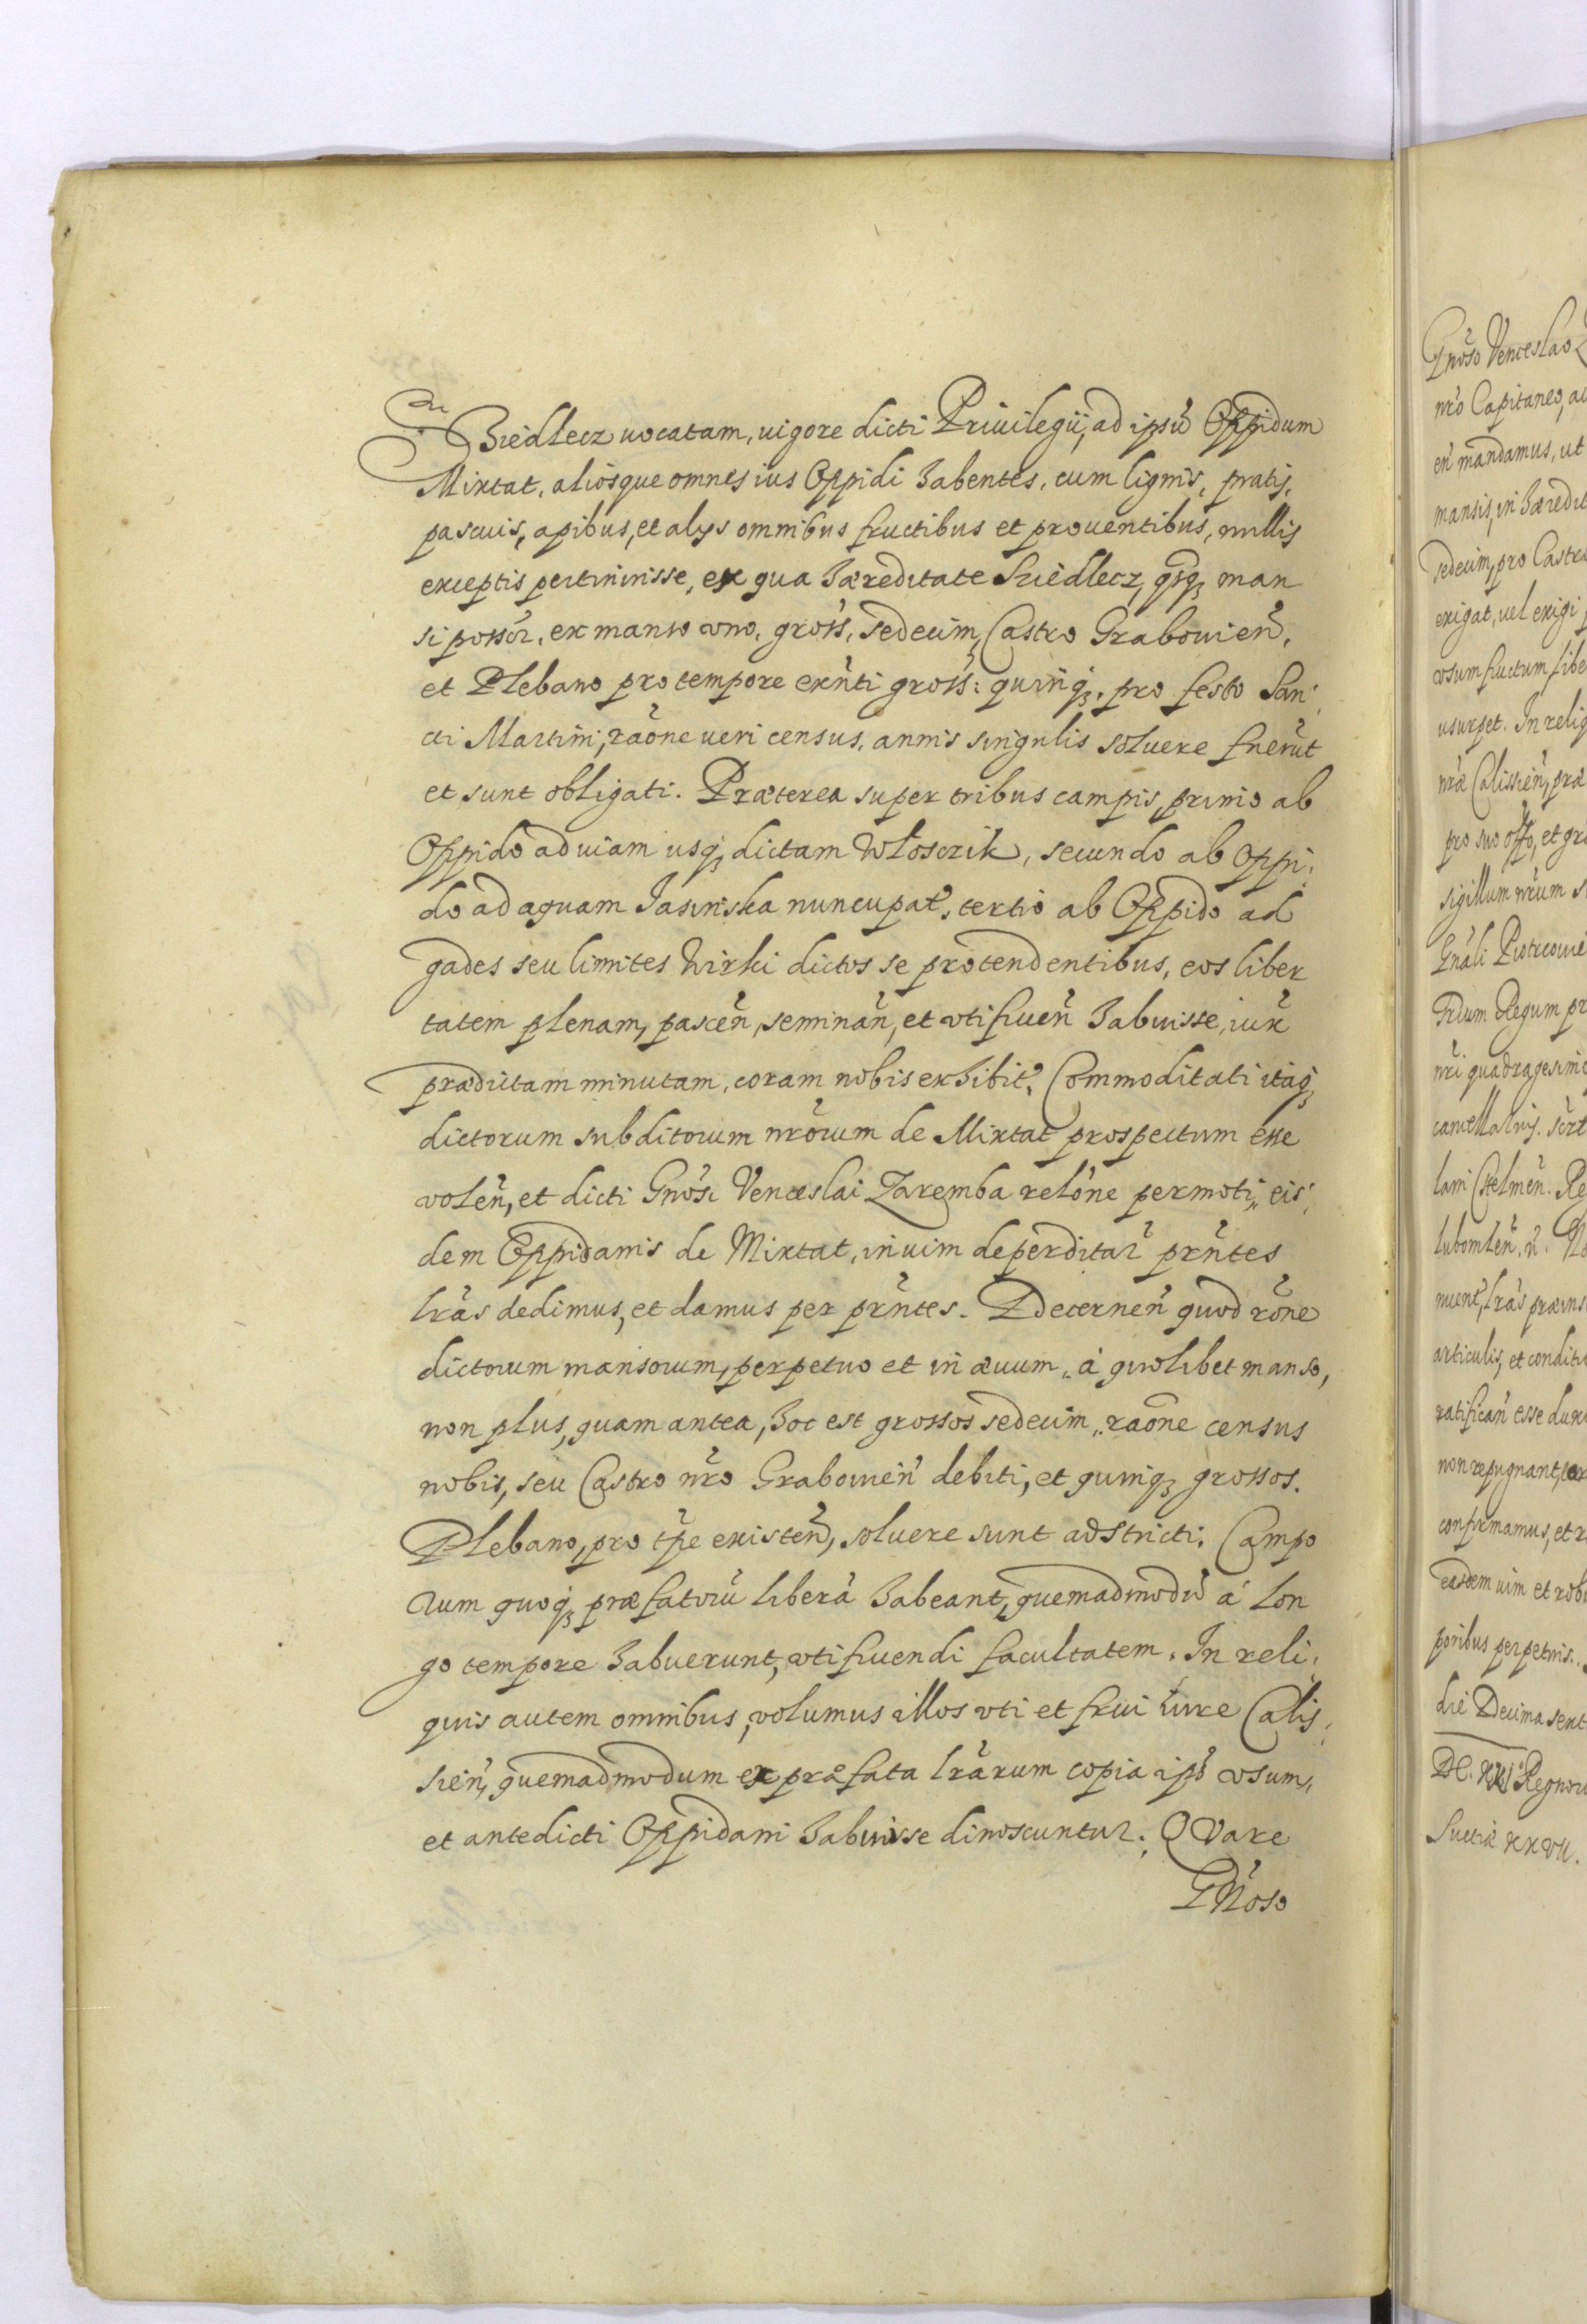 Siedlecz uocatam, uigore dicti Priuilegij, ad ipsū Oppidum
Mixtat, aliosque omnes ius Oppidi habentes, cum lignis, pratis,
pascuis, apibus, et alys omnibus fructibus et prouentibus, nullis
exceptis pertinuisse, ex qua hæreditate Siedlecz, man
si possōr, ex manso vno, gross, sedecim, Castro Grabouien̄,
et Plebano pro tempore exn̄ti gross: quinq3, pro festo San:
cti Martini, rāone ueri census, annis singulis soluere fuerūt
et sunt obligati. Præterea super tribus campis, primo ab
Oppido ad uiam usq3 dictam Włosczik, secundo ab Oppi:
do ad aquam Jasinska nuncupat̄, tertio ab Oppido ad
gades seu limites Wirki dictos se protendentibus, eos liber
tatem plenam, pascen̄, seminan̄, et vtifruen̄ habuisse, iux̄
prædictam minutam, coram nobis exhibit̄. Commoditati itaq3
dictorum subditorum nr̄orum de Mixtat prospectum esse
volen̄, et dicti Gnōsi Venceslai Zaremba relōne permoti, eis:
dem Oppidanis de Mixtat, in uim deperditar̄ prn̄tes
lr̄as dedimus, et damus per prn̄tes. Decernen̄ quod rōne
dictorum mansorum, perpetuo et in æuum, à quolibet manso,
non plus, quam antea, hoc est grossos sedecim, rāone census
nobis, seu Castro nr̄o Grabouien̄ debiti, et quinq3 grossos.
Plebano, pro tp̄e existen̄, soluere sunt adstricti. Campo
rum quoq3 præfatorū liberā habeant, quemadmodū à lon
go tempore habuerunt, vtifruendi facultatem. In reli:
quis autem omnibus, volumus illos vti et frui iure Calis:
sien̄, quemadmodum ex præfata lr̄arum copia ips̄ vsum,
et antedicti Oppidani habuisse dinoscuntur. QVare
GNōso
Gnōso Venceslao
nr̄o Capitaneo, ac
en̄ mandamus, ut
mansis, in hæredit
sedecim, pro Castro
exigat, uel exigi
vsumfructum libe
usurpet. In reliq
nr̄a Calissien̄, præ
pro suo offo, et gr
sigillum nr̄um s
Gn̄ali Piotrcouie
trium Regum pr
nr̄i quadragesimo
cancellarius. Scrt
lain Chelmen̄. Re
lubomlen̄. n̄. No
nuent̄, lr̄as præins
articulis, et conditi
ratifican̄ esse duxi
non repugnant, ex
confirmamus, et r
easdem uim et robu
poribus perpetuis.
die Decima sext
Regnoru
Suetiæ XXVII.